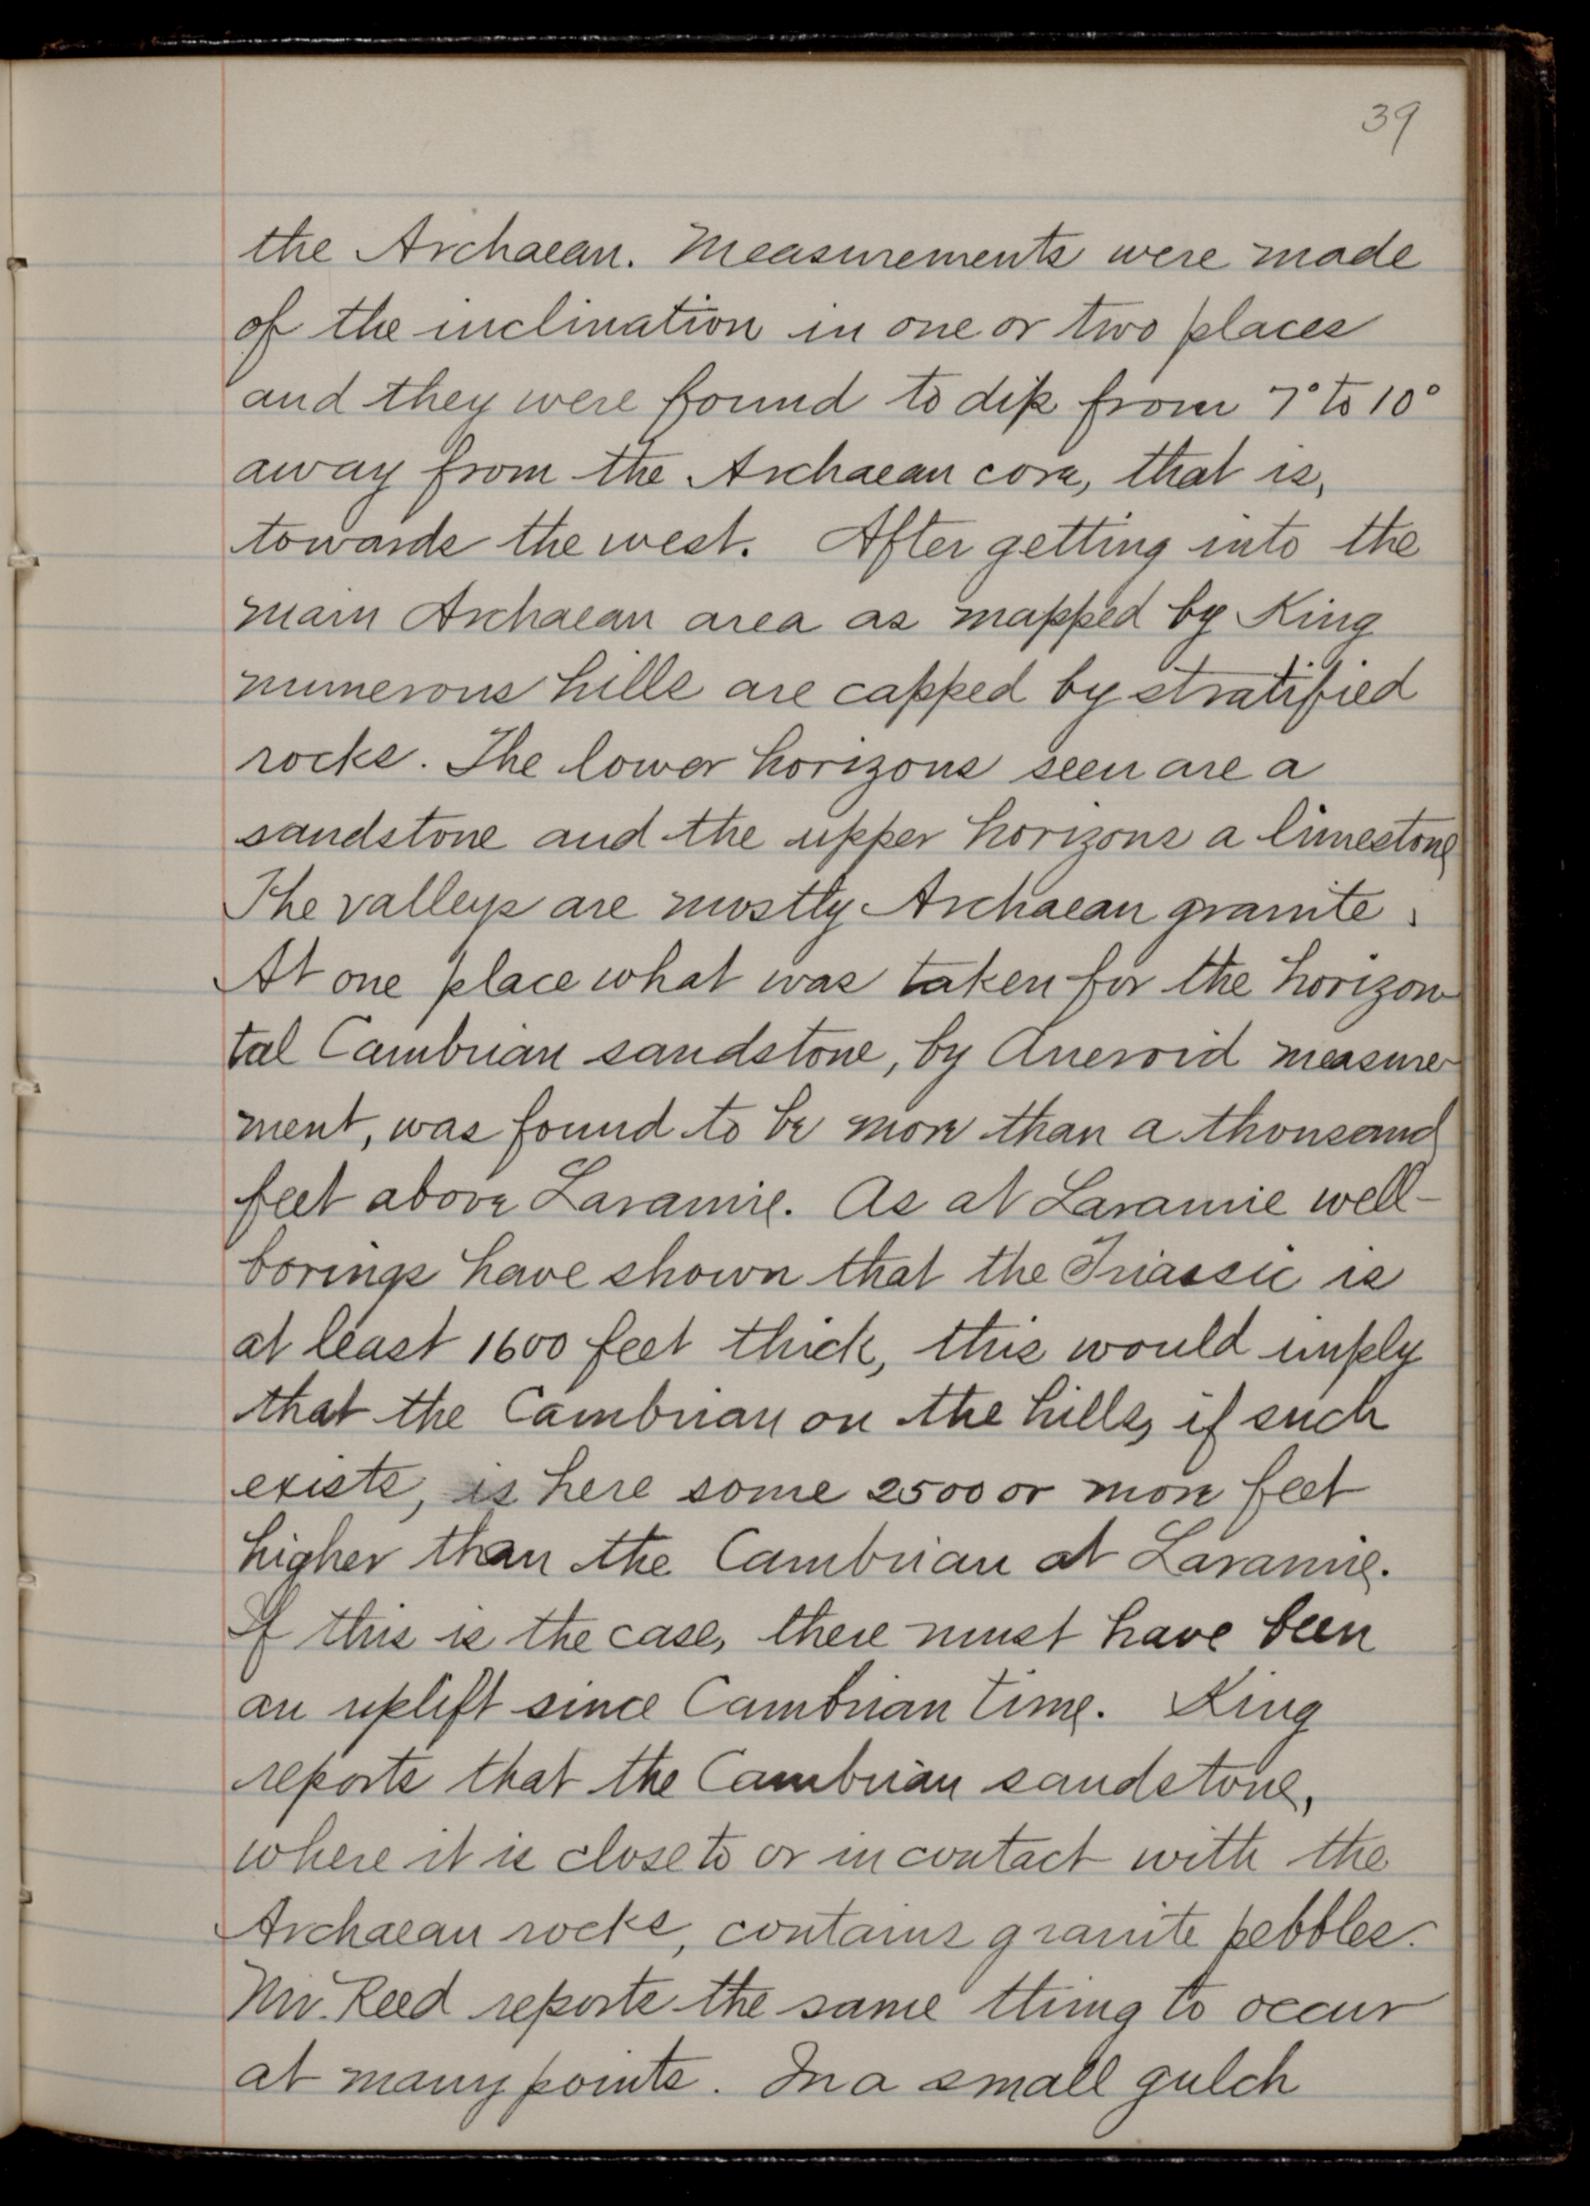 39
the Archaean. Measurements were made
of the inclination in one or two places
and they were found to dip from 7° to 10°
away from the Archaean core, that is,
towards the west. After getting into the
main Archaean area as mapped by King
numerous hills are capped by stratified
rocks. The lower horizons seen are a
sandstone and the upper horizons a limestone
The valleys are mostly Archaean granite.
At one place what was taken for the horizon-
tal Cambrian sandstone, by Aneroid measure-
ment, was found to be more than a thousand
feet above Laramie. As at Laramie well-
borings have shown that the Triassic is
at least 1600 feet thick, this would imply
that the Cambrian on the hills, if such
exists, is here some 2500 or more feet
higher than the Cambrian at Laramie.
If this is the case, there must have been
an uplift since Cambrian time. King
reports that the Cambrian sandstone,
where it is close to or in contact with the
Archaean rocks, contains granite pebbles.
Mr. Reed reports the same thing to occur
at many points. In a small gulch